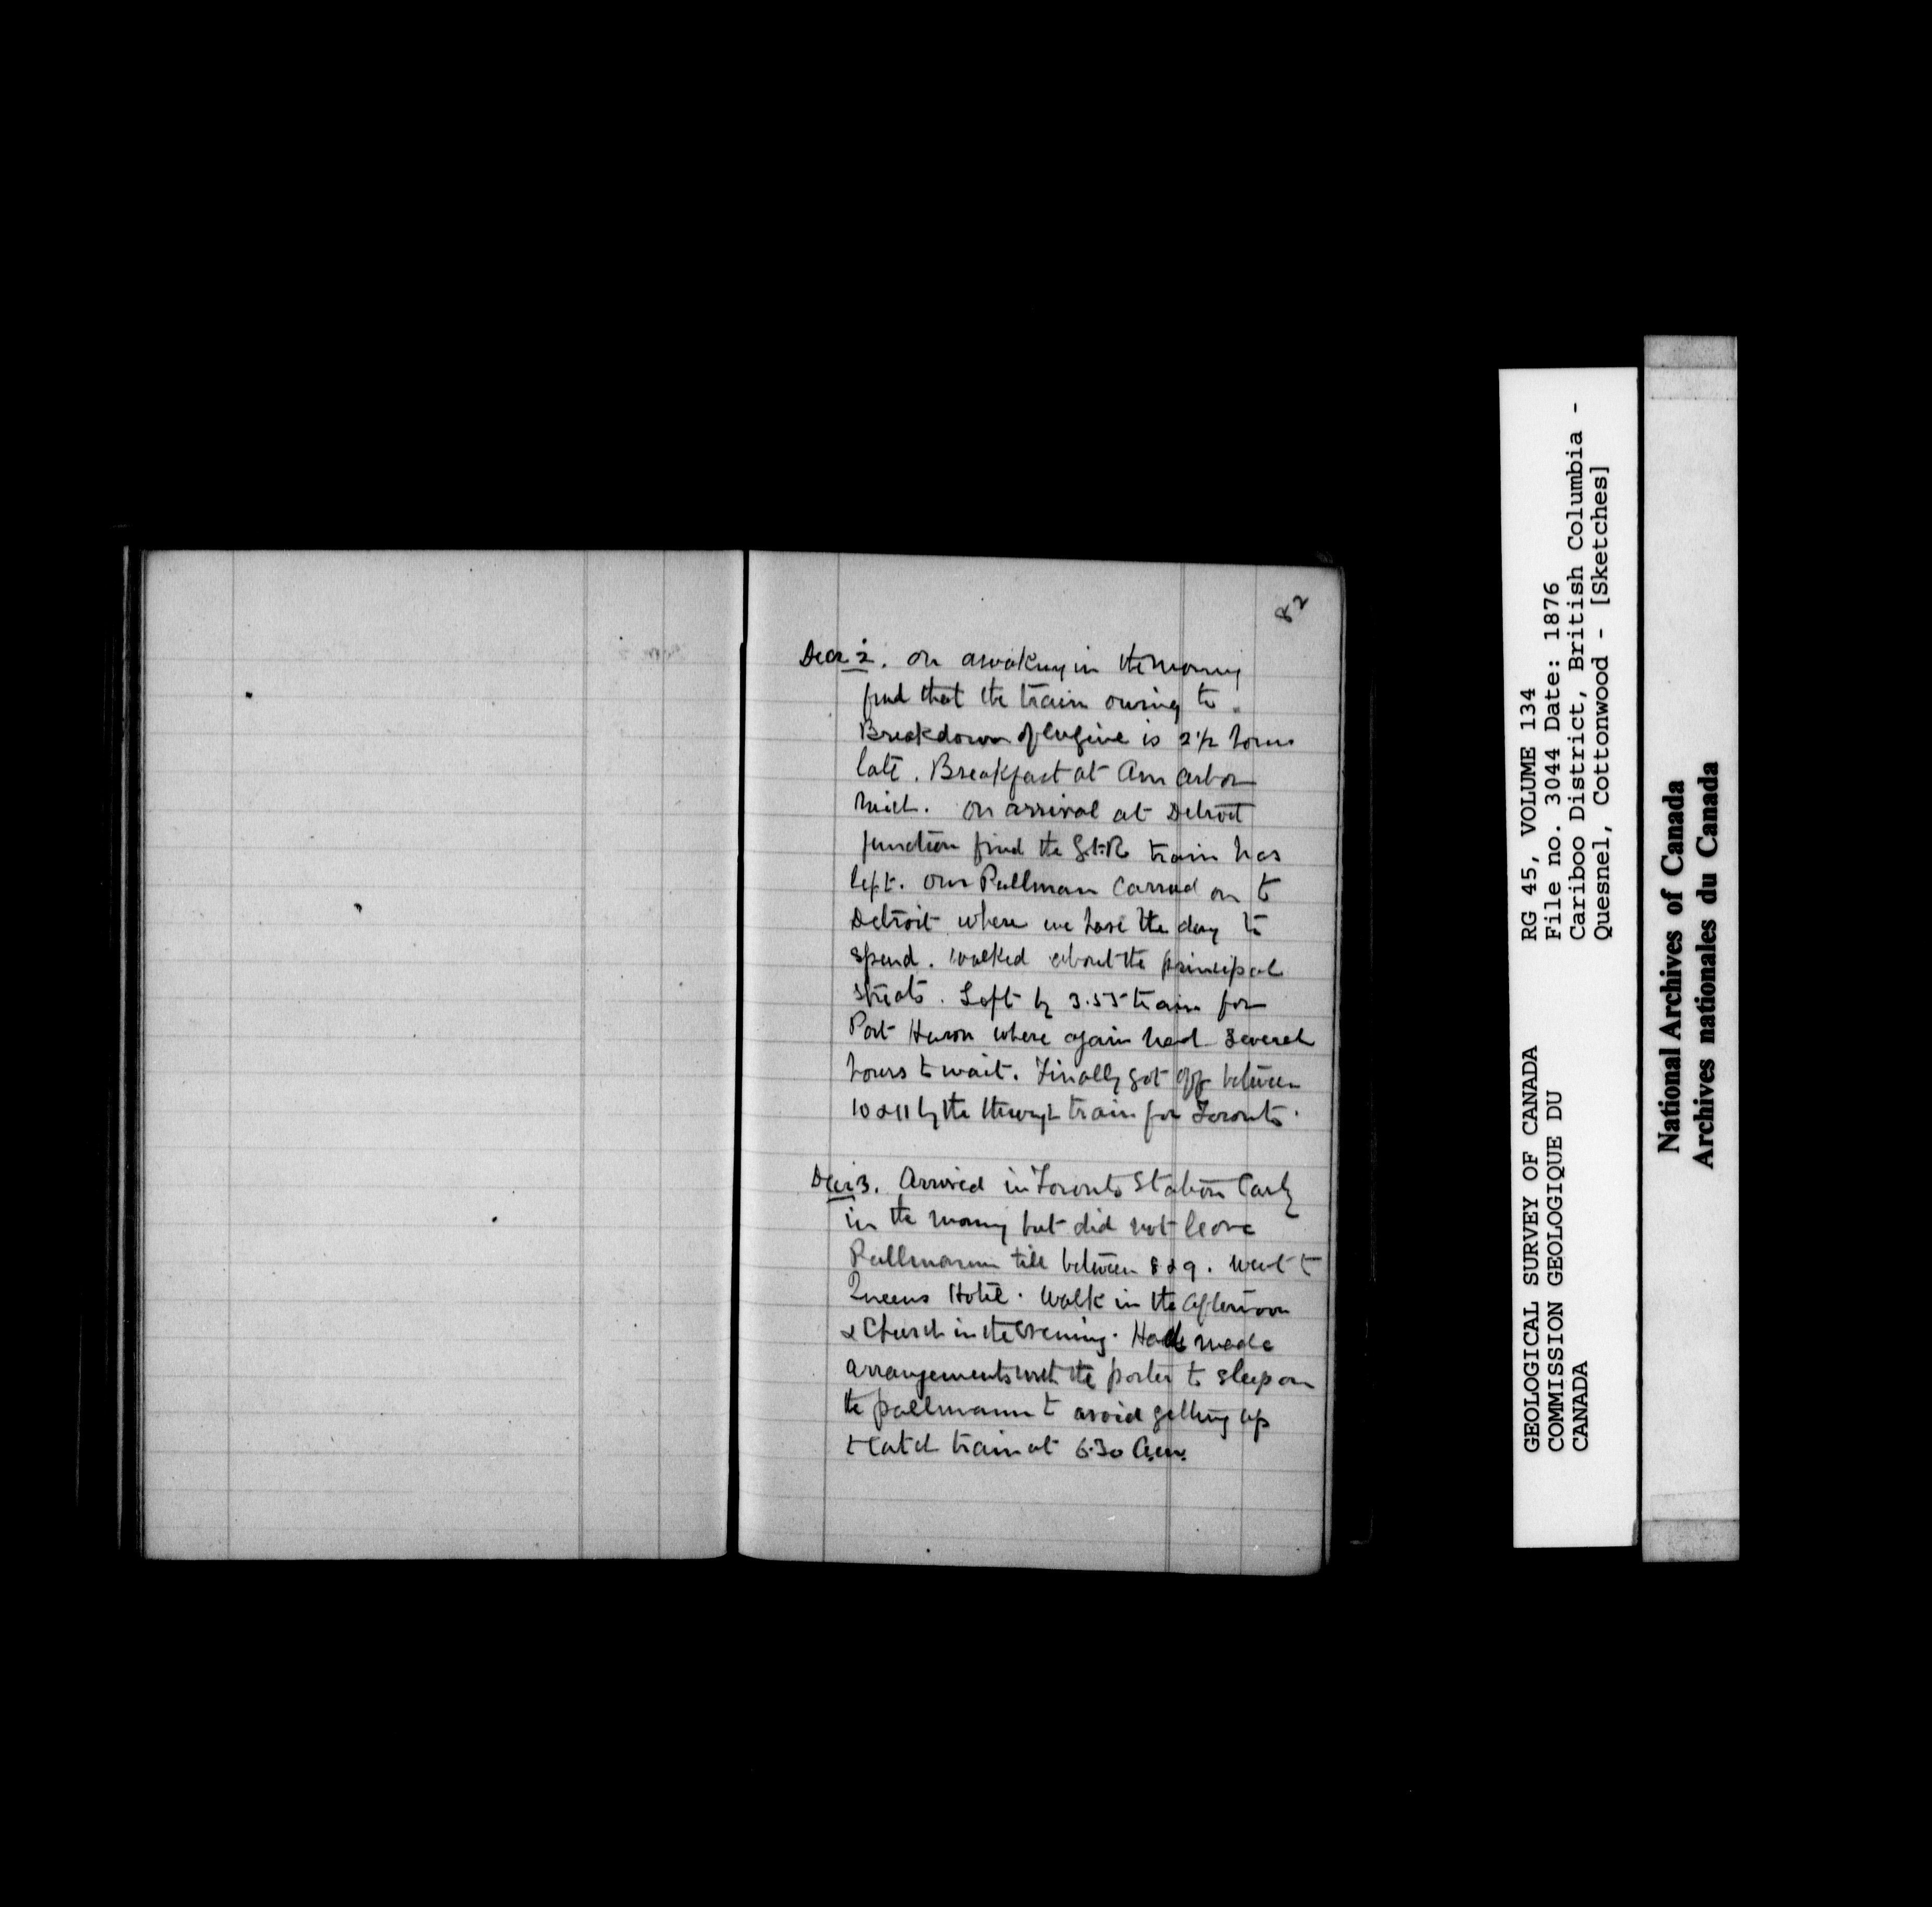 82
Decr 2. On awaking in the morning
find that the train owing to
Breakdown of Engine is 2 1/2 hours
late. Breakfast at Ann Arbor
Mich. On arrival at Detroit
function find the G.t.R train has
left. Our Pullman Carried on to
Detroit where we have the day to
spend. Walked about the principal
streets. Left by 3.55 train for
Port Huron where again had several
hours to wait. Finally got off between
10 & 11 by the through train for Toronto.
Decr 3. Arrived in Toronto Station Early
in the morning but did not leave
Pullmann till between 8 & 9. Went to
Queens Hotel. Walk in the afternoon
& Church in the Evening. Had made
arrangements with the porter to sleep on
the pullmann to avoid getting up
to Catch train at 6.30 a.m.
GEOLOGICAL SURVEY OF CANADA
COMMISSION GEOLOGIQUE DU
CANADA
RG 45, VOLUME 134
File no. 3044 Date: 1876
Cariboo District, British Columbia -
Quesnel, Cottonwood - [Sketches]
National Archives of Canada
Archives nationales du Canada